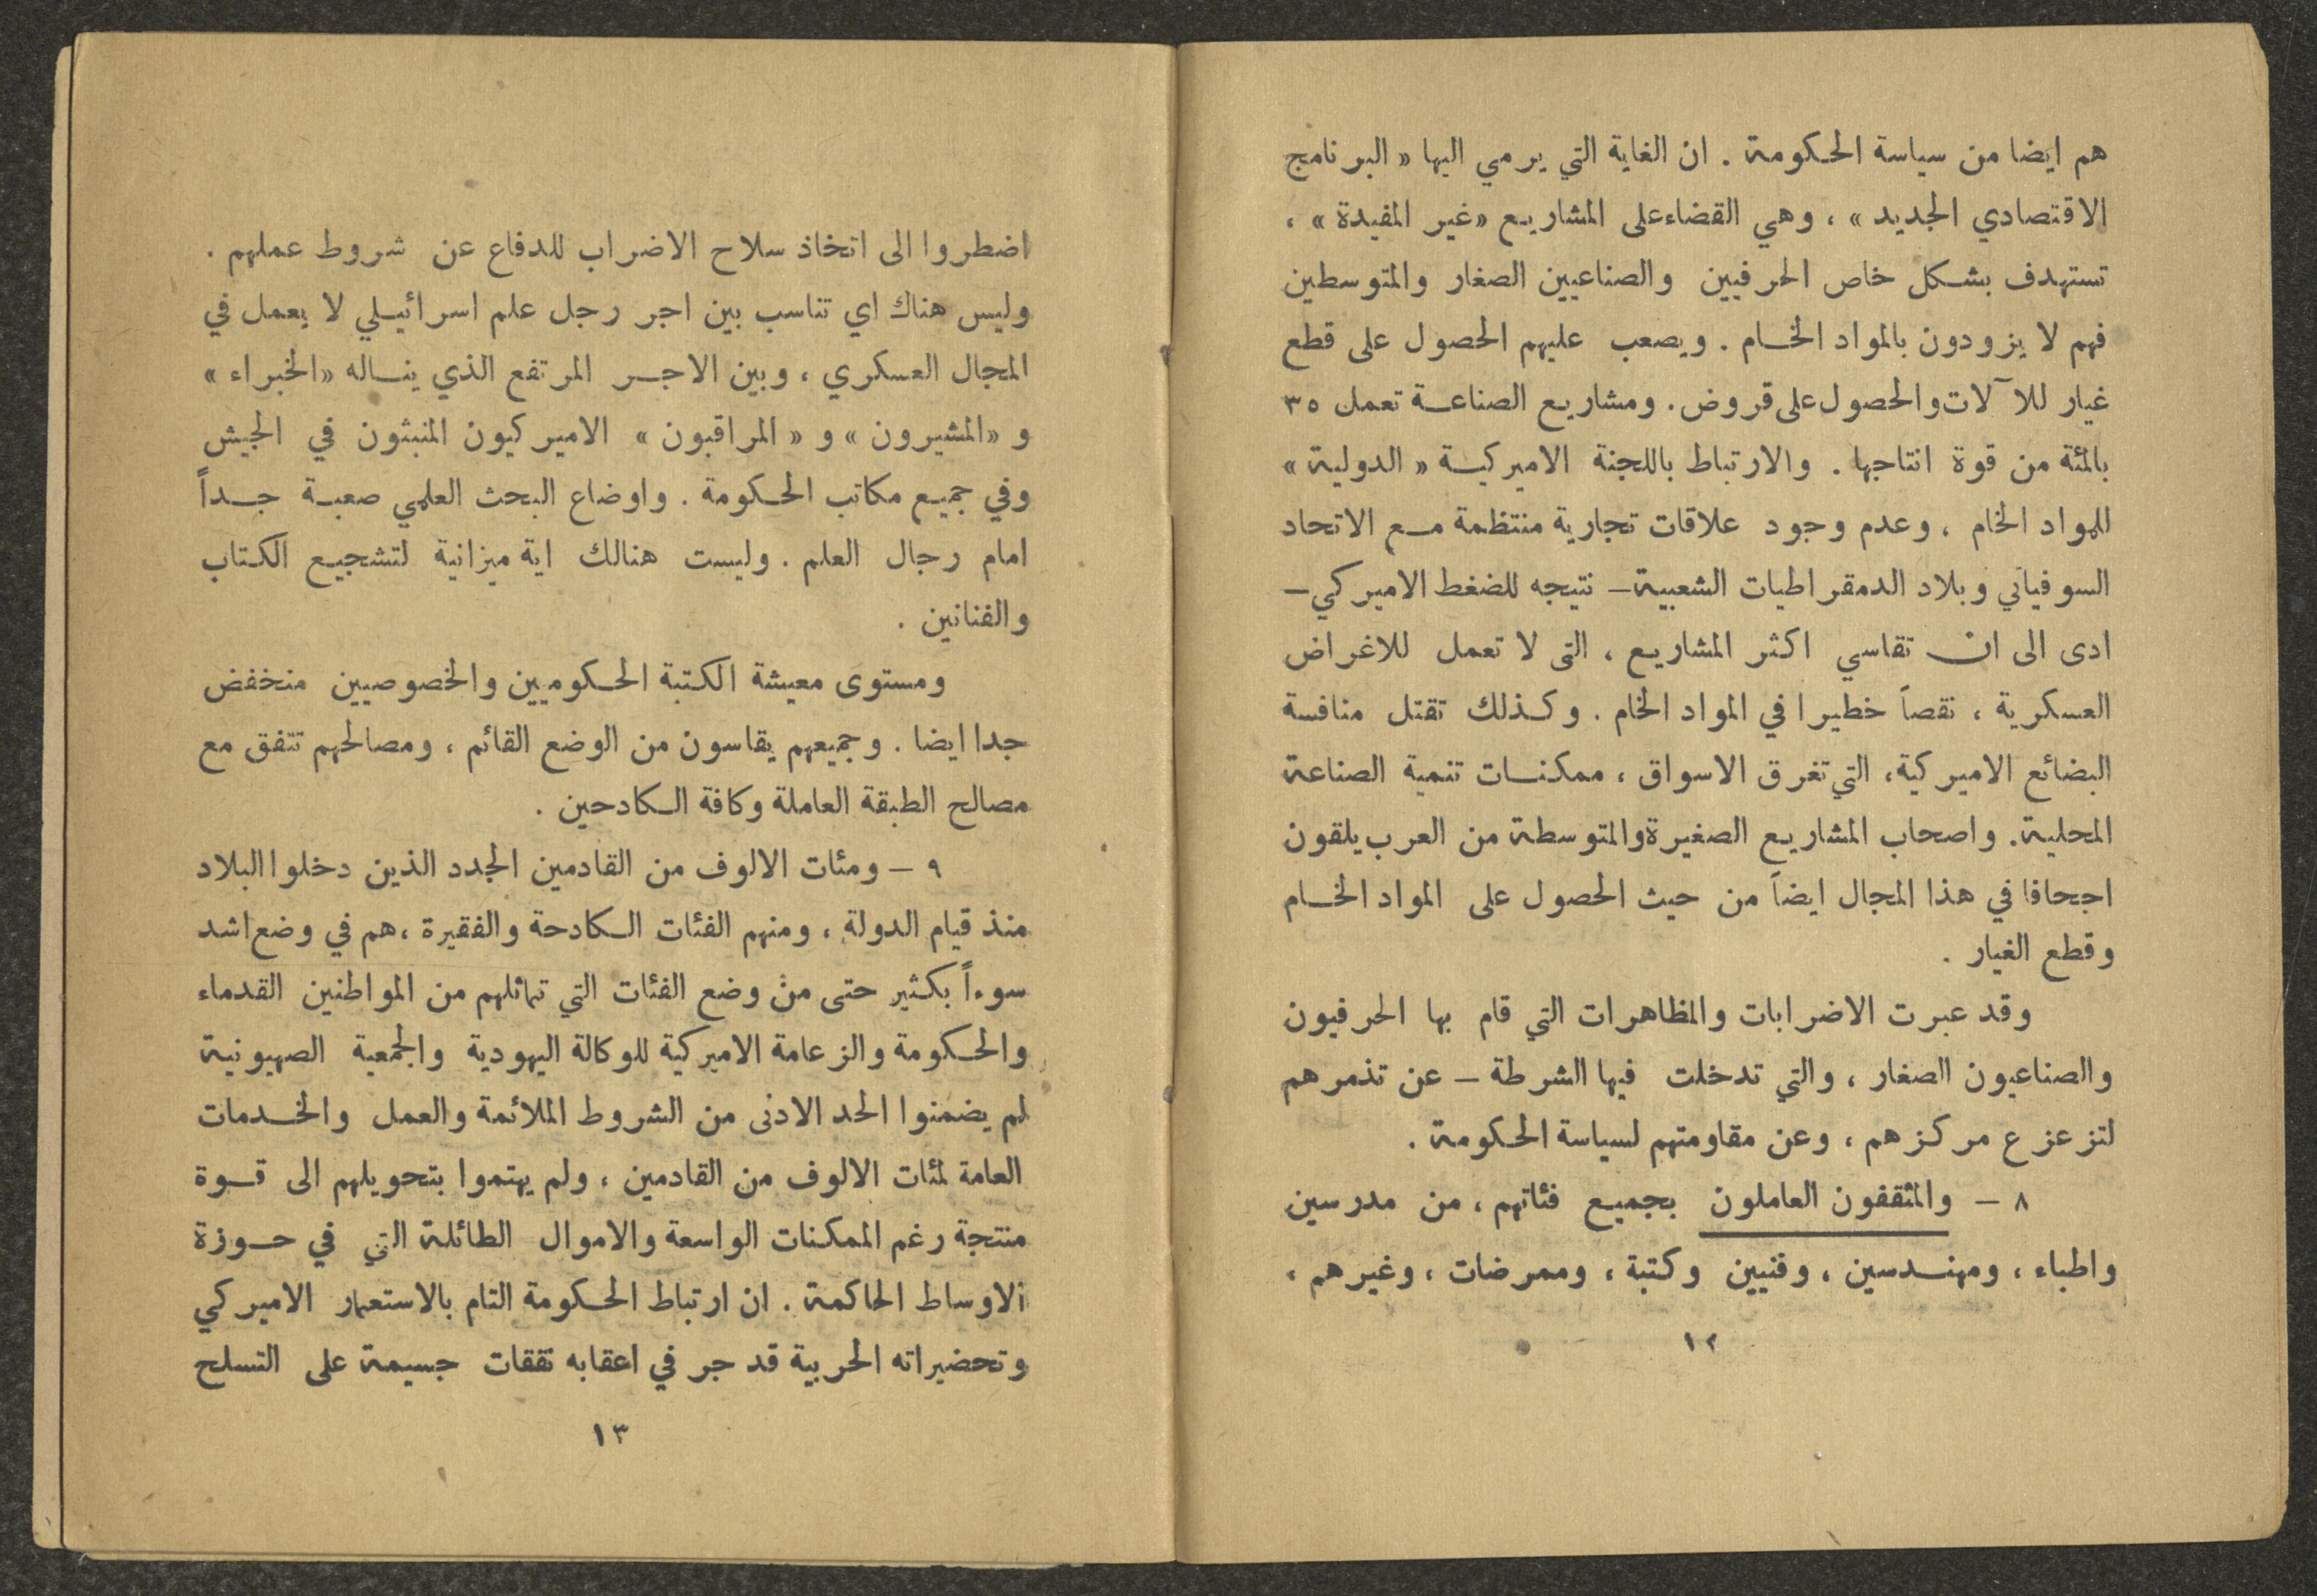 هم ايضا من سياسة الحكومة . ان الغاية التي يرمي اليها « البرنامج
الاقتصادي الجديد » ، وهي القضاء على المشاريع «غير المفيدة» ،
تستهدف بشكل خاص الحرفيين والصناعيين الصغار والمتوسطين
فهم لا يزودون بالمواد الخام . ويصعب عليهم الحصول على قطع
غيار للآلات والحصول على قروض . ومشاريع الصناعة تعمل ٣٥
بالمئة من قوة انتاجها . والارتباط باللجنة الاميركية « الدولية »
للمواد الخام ، وعدم وجود علاقات تجارية منتظمة مع الاتحاد
السوفياتي وبلاد الدمقراطيات الشعبية – نتيجه للضغط الاميركي –
ادى الى ان تقاسي اكثر المشاريع ، التى لا تعمل للاغراض
العسكرية ، نقصاً خطيرا في المواد الخام . وكذلك تقتل منافسة
البضائع الاميركية ، التي تغرق الاسواق ، ممكنات تنمية الصناعة
المحلية . واصحاب المشاريع الصغيرة والمتوسطة من العرب يلقون
اجحافا في هذا المجال ايضاً من حيث الحصول على المواد الخام
وقطع الغيار .
وقد عبرت الاضرابات والمظاهرات التي قام بها الحرفيون
والصناعيون الصغار ، والتي تدخلت فيها الشرطة – عن تذمرهم
لتزعزع مركزهم ، وعن مقاومتهم لسياسة الحكومة .
٨ – والمثقفون العاملون بجميع فئاتهم ، من مدرسين
واطباء ، ومهندسين ، وفنيين وكتبة ، وممرضات ، وغيرهم ،
١٢
اضطروا الى اتخاذ سلاح الاضراب للدفاع عن شروط عملهم .
وليس هناك اي تناسب بين اجر رجل علم اسرائيلي لا يعمل في
المجال العسكري ، وبين الاجر المرتفع الذي يناله «الخبراء»
و «المشيرون» و «المراقبون» الاميركيون المنبثون في الجيش
وفي جميع مكاتب الحكومة . واوضاع البحث العلمي صعبة جداً
امام رجال العلم . وليست هنالك اية ميزانية لتشجيع الكتاب
والفنانين .
ومستوى معيشة الكتبة الحكوميين والخصوصيين منخفض
جدا ايضا . وجميعهم يقاسون من الوضع القائم ، ومصالحهم تتفق مع
مصالح الطبقة العاملة وكافة الكادحين .
٩ – ومئات الالوف من القادمين الجدد الذين دخلوا البلاد
منذ قيام الدولة ، ومنهم الفئات الكادحة والفقيرة ، هم في وضع اشد
سوءاً بكثير حتى من وضع الفئات التي تماثلهم من المواطنين القدماء
والحكومة والزعامة الاميركية للوكالة اليهودية والجمعية الصهيونية
لم يضمنوا الحد الادنى من الشروط الملائمة والعمل والخدمات
العامة لمئات الالوف من القادمين ، ولم يهتموا بتحويلهم الى قوة
منتجة رغم الممكنات الواسعة والاموال الطائلة التي في حوزة
الاوساط الحاكمة . ان ارتباط الحكومة التام بالاستعمار الاميركي
وتحضيراته الحربية قد جر في اعقابه نفقات جسيمة على التسلح
١٣